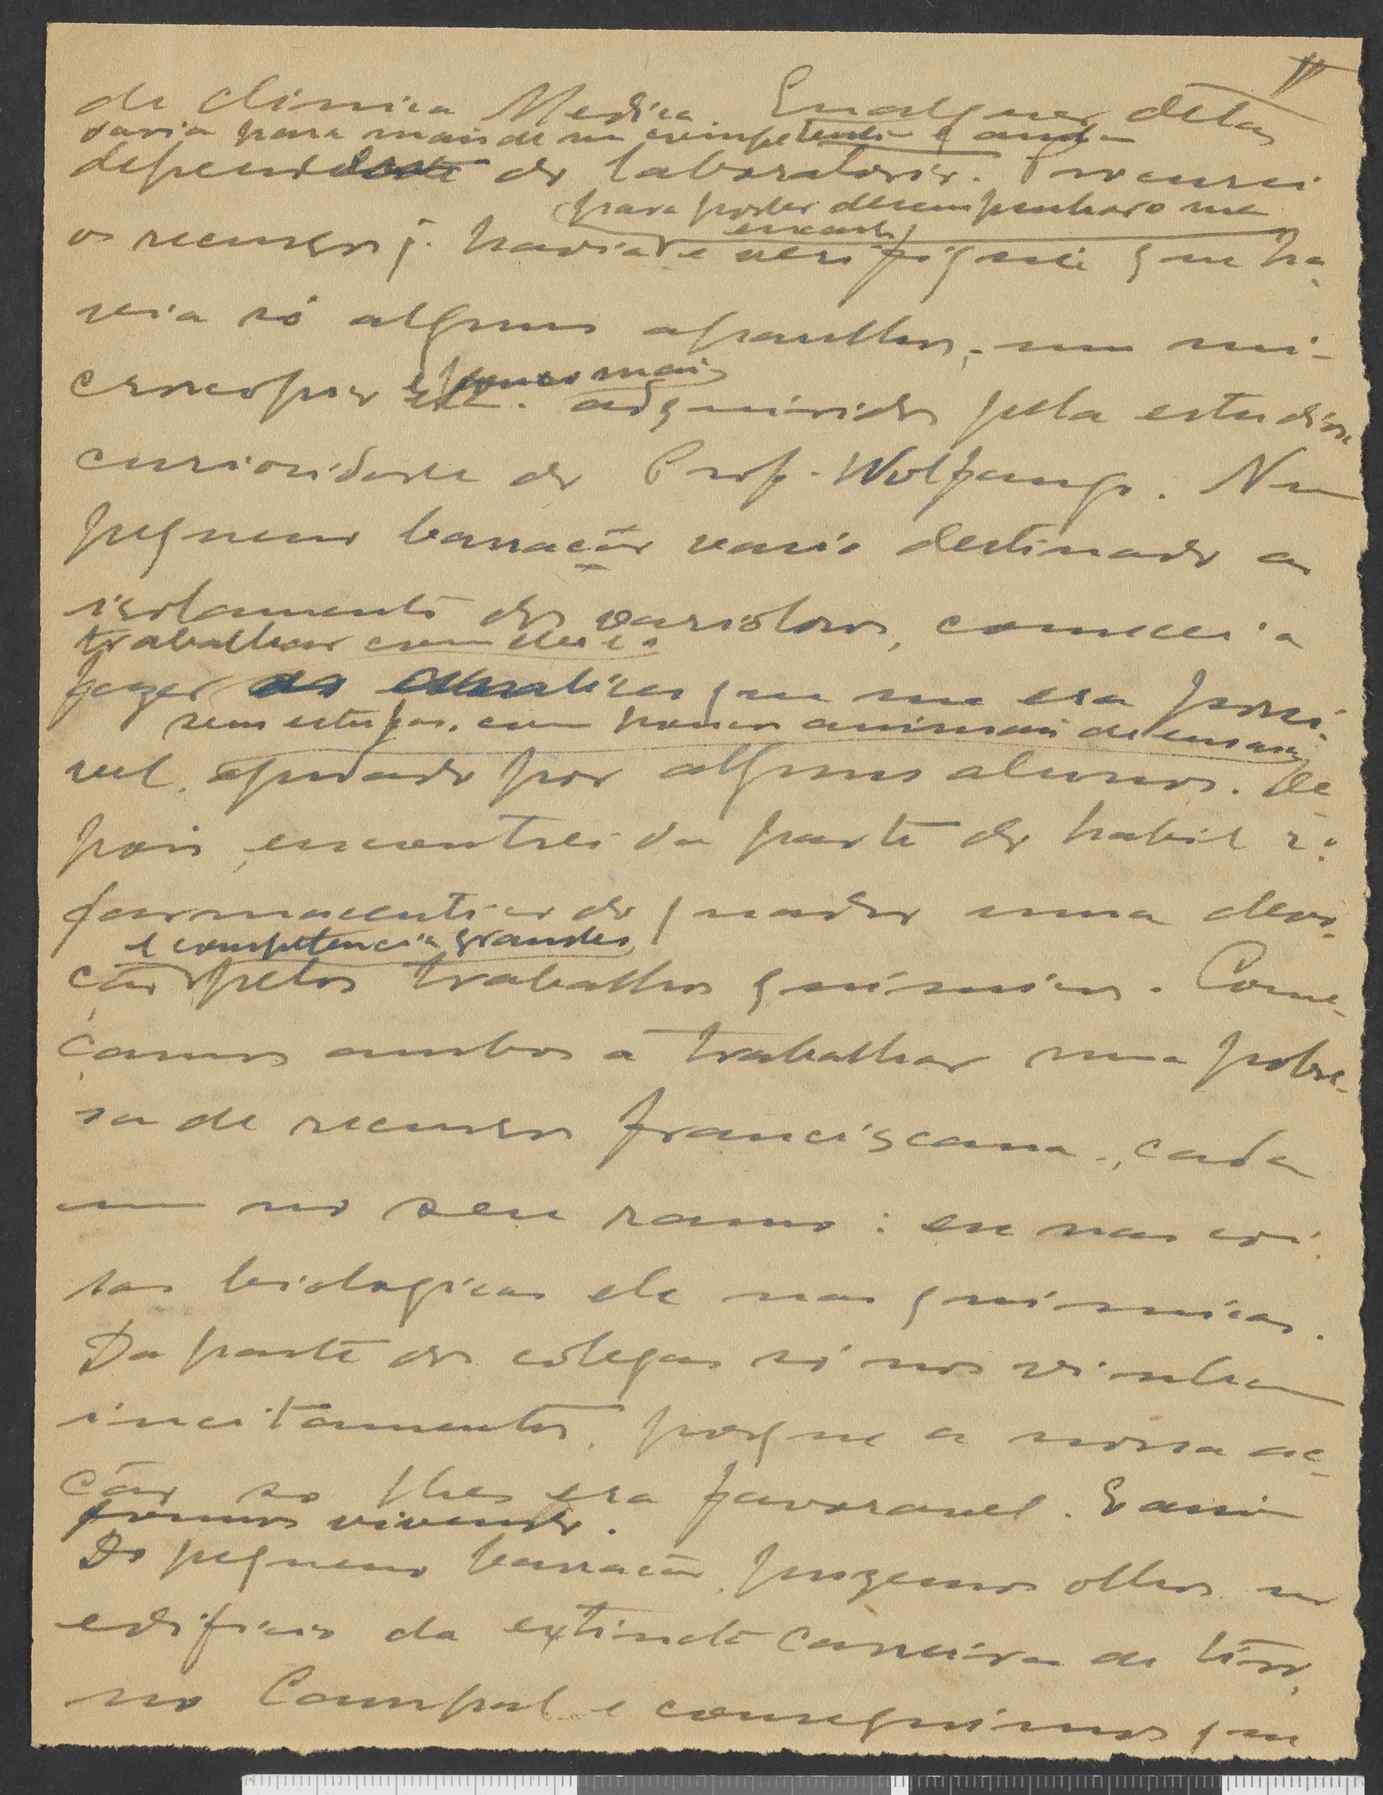 IV
de clinica Medica. Qualquer delas
daria para mais de um competente e ainda
dependente do laboratorio. Procurei
para poder desempenhar o meu
encargo
os recursos q. havia e verifiquei que ha-
via só alguns aparelhos, um mi-
e pouco mais
croscopio etc. adquiridos pela estudiosa
curiosidade do Prof. Wolfango. Num
pequeno barracão vasio destinado a
isolamento dos variolosos, comecei a
trabalhar com
fazer as que me era possi-
sem estufas, com poucos animais de ensaio
vel, ajudado por alguns alunos. De-
pois, encontrei da parte do habil 2º
farmaceutico do quadro uma devo-
e competencia grandes
ção pelos trabalhos quimicos. Come-
çamos ambos a trabalhar numa pobre-
sa de recursos franciscana, cada
um no seu ramo: eu nas coi-
sas biologicas ele nas quimicas.
Da parte dos colegas só nos vinham
incitamentos, porque a nossa ac-
ção só lhes era favoravel. E assim
fomos vivendo.
Do pequeno barracão, puzemos olhos no
edificio da extinta Carreira de Tiro,
no Campal e conseguimos que